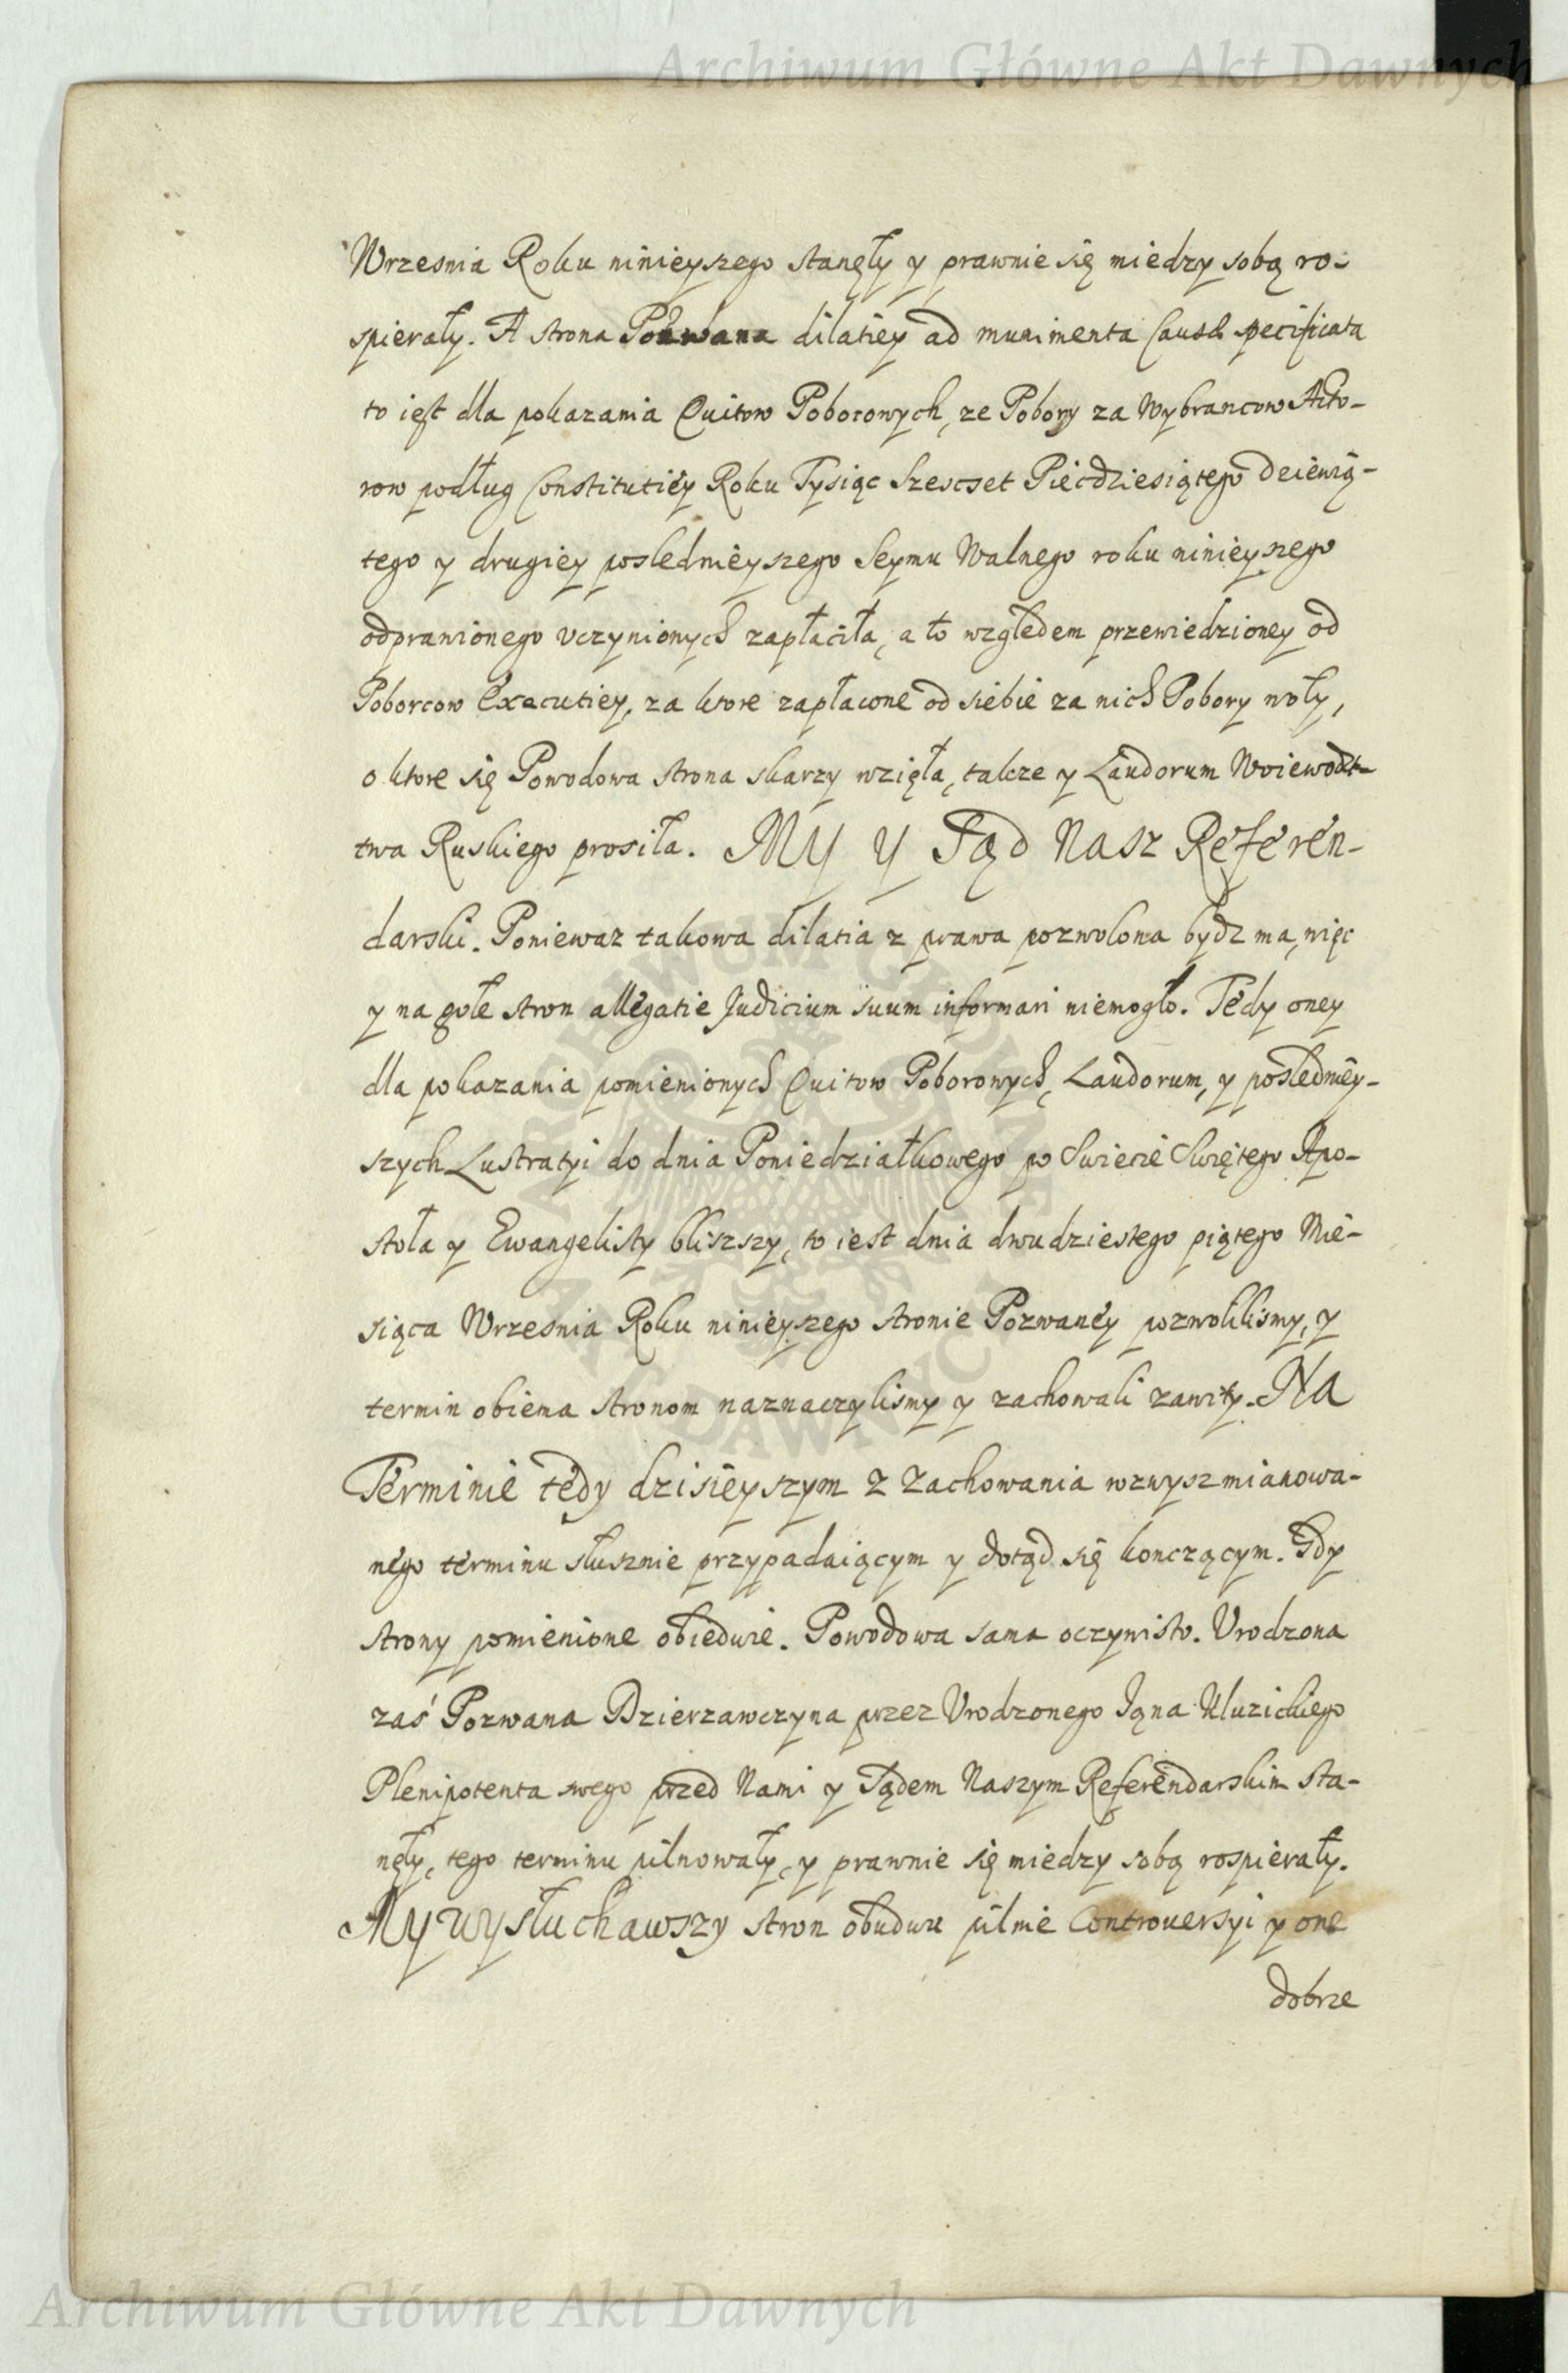 Archiwum Główne Akt Dawnych
Wrzesnia Roku ninieyszego stanęły y prawnie się miedzy sobą ro-
spierały. A strona Pozwana dilatiey ad munimenta Causæ specificata
to iest dla pokazania Quitow Poborowych, ze Pobory za Wybrancow Acto-
row podług Constitutiey Roku Tysiąc Szescset Piecdziesiątego Dziewią-
tego y drugiey posledniejszego Seymu Walnego roku ninieyszego
odprawionego vczynionych zapłaciła, a to względem przewiedzioney od
Poborcow Executiey, za ktore zapłacone od siebie za nich Pobory woły,
o ktore się Powodowa strona skarzy wzięła, takze y Laudorum Woiewodz-
twa Ruskiego prosiła. My y Sąd Nasz Referen-
darski. Poniewaz takowa dilatia z prawa pozwolona bydz ma, więc
y na gołe stron allegatie Judicium suum informari niemogło. Tedy oney
dla pokazania pomienionych Quitow Poborowych, Laudorum, y posledniey-
szych Lustratyi do dnia Poniedziałkowego po Swiecie Swiętego Apo-
stoła y Ewangelisty bliszszy, to iest dnia dwudziestego piątego Mie-
siąca Wrzesnia Roku ninieyszego stronie Pozwaney pozwolilismy, y
termin obiema stronom naznaczylismy y zachowali zawity. Na
Terminie tedy dzisieyszym z zachowania wzwysz mianowa-
nego terminu słusznie przypadaiącym y dotąd się konczącym. Gdy
strony pomienione obiedwie. Powodowa sama oczywisto. Vrodzona
zaś Pozwana Dzierzawczyna przez Vrodzonego Jana
Plenipotenta swego przed Nami y Sądem Naszym Referendarskim sta-
nęły, tego terminu pilnowały, y prawnie się miedzy sobą rospierały.
My wysłuchawszy stron obudwu pilnie Controuersyi y one
dobrze
Archiwum Główne Akt Dawnych